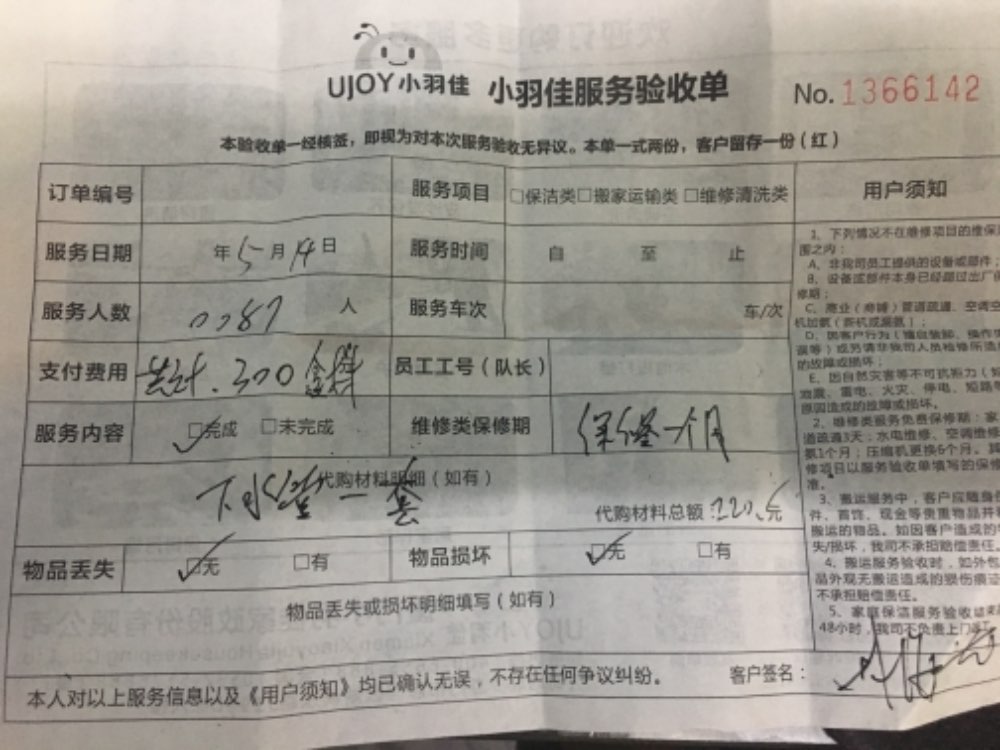 UJOY小羽佳 小羽佳服务验收单 No.1366142
本验收单一经核签，即视为对本次服务验收无异议。本单一式两份，客户留存一份（红）
订单编号 服务项目 □保洁类□搬家运输类 □维修清洗类
服务日期 年5月14日 服务时间 自 至 止
服务人数 0087 人 服务车次 车/次
支付费用 共计.300含料 员工工号（队长）
服务内容 □完成 □未完成 维修类保修期 保修一个月
代购材料明细（如有）
下水管一套
代购材料总额:220.元
物品丢失 □无 □有 物品损坏 □无 □有
物品丢失或损坏明细填写（如有）
本人对以上服务信息以及《用户须知》均已确认无误，不存在任何争议纠纷。 客户签名：
用户须知
1、下列情况不在维修项目的维保
围之内：
A、非我司员工提供的设备或部件；
B、设备或部件本身已经超过出厂
修期；
C、商业（商铺）管道疏通、空调空
机加氨（新机或漏氨）；
D、因客户行为（擅自装卸、操作
误等）或另请非我司人员检修所造
的故障或损坏；
E、因自然灾害等不可抗力（如
地震、雷电、火灾、停电、短路
原因造成的故障或损坏。
2、维修类服务免费保修期：家
道疏通3天；水电维修、空调维修
氨1个月；压缩机更换6个月。其
修项目以服务验收单填写的保修
准。
3、搬运服务中，客户应随身
件、首饰、现金等贵重物品并
搬运的物品。如因客户造成的
失/损坏，我司不承担赔偿责任。
4、搬运服务验收时，如外包
品外观无搬运造成的损伤痕迹
不承担赔偿责任。
5、家庭保洁服务验收结束
48小时，我司不负责上门